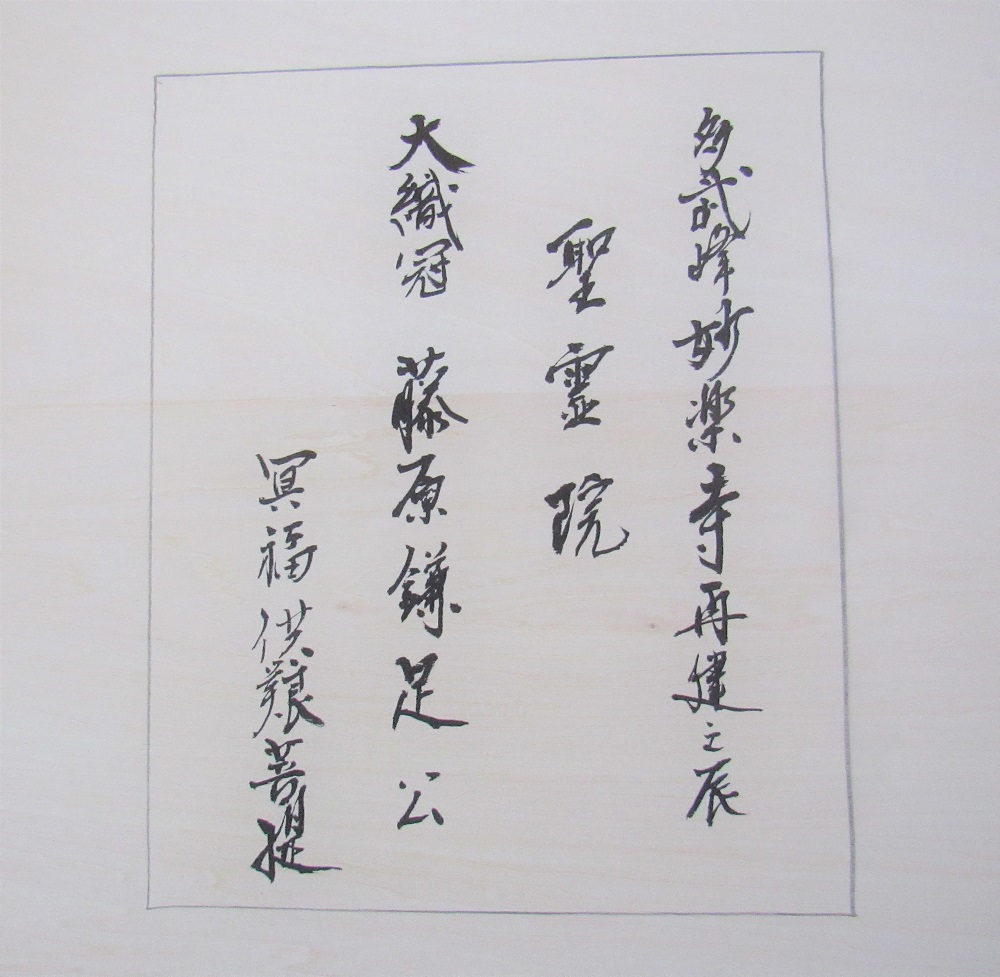 多武峰妙楽寺再建之辰
聖霊院
大織冠 藤原鎌足公
冥福供養菩提